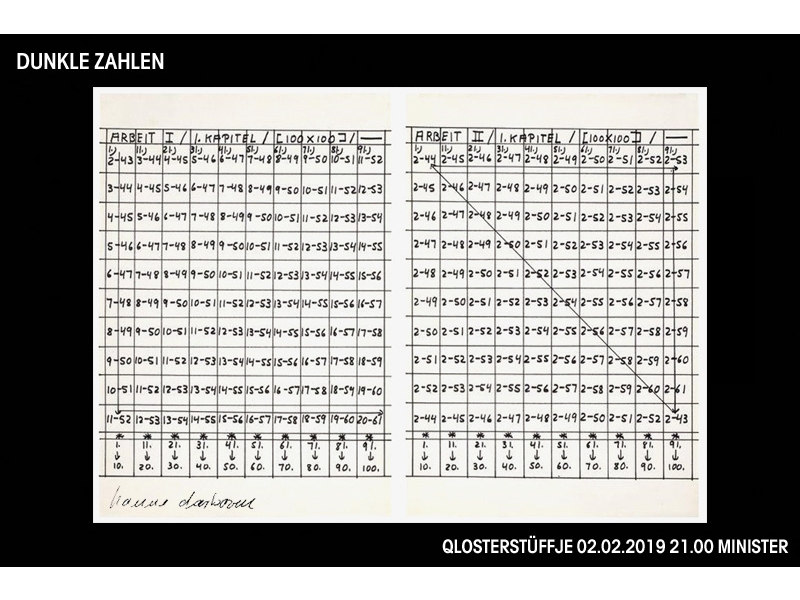 DUNKLE ZAHLEN
ARBEIT I / 1. KAPITEL / [100X100] / —
1.) 11.) 21.) 31.) 41.) 51.) 61.) 71.) 81.) 91.)
2-43 3-44 4-45 5-46 6-47 7-48 8-49 9-50 10-51 11-52
3-44 4-45 5-46 6-47 7-48 8-49 9-50 10-51 11-52 12-53
4-45 5-46 6-47 7-48 8-49 9-50 10-51 11-52 12-53 13-54
5-46 6-47 7-48 8-49 9-50 10-51 11-52 12-53 13-54 14-55
6-47 7-48 8-49 9-50 10-51 11-52 12-53 13-54 14-55 15-56
7-48 8-49 9-50 10-51 11-52 12-53 13-54 14-55 15-56 16-57
8-49 9-50 10-51 11-52 12-53 13-54 14-55 15-56 16-57 17-58
9-50 10-51 11-52 12-53 13-54 14-55 15-56 16-57 17-58 18-59
10-51 11-52 12-53 13-54 14-55 15-56 16-57 17-58 18-59 19-60
11-52 12-53 13-54 14-55 15-56 16-57 17-58 18-59 19-60 20-61
* * * * * * * * * *
1. 11. 21. 31. 41. 51. 61. 71. 81. 91.
↓ ↓ ↓ ↓ ↓ ↓ ↓ ↓ ↓ ↓
10. 20. 30. 40. 50. 60. 70. 80. 90. 100.
hanne darboven
ARBEIT II / 1. KAPITEL / [100X100] / —
1.) 11.) 21.) 31.) 41.) 51.) 61.) 71.) 81.) 91.)
2-44 2-45 2-46 2-47 2-48 2-49 2-50 2-51 2-52 2-53
2-45 2-46 2-47 2-48 2-49 2-50 2-51 2-52 2-53 2-54
2-46 2-47 2-48 2-49 2-50 2-51 2-52 2-53 2-54 2-55
2-47 2-48 2-49 2-50 2-51 2-52 2-53 2-54 2-55 2-56
2-48 2-49 2-50 2-51 2-52 2-53 2-54 2-55 2-56 2-57
2-49 2-50 2-51 2-52 2-53 2-54 2-55 2-56 2-57 2-58
2-50 2-51 2-52 2-53 2-54 2-55 2-56 2-57 2-58 2-59
2-51 2-52 2-53 2-54 2-55 2-56 2-57 2-58 2-59 2-60
2-52 2-53 2-54 2-55 2-56 2-57 2-58 2-59 2-60 2-61
2-44 2-45 2-46 2-47 2-48 2-49 2-50 2-51 2-52 2-43
* * * * * * * * * *
1. 11. 21. 31. 41. 51. 61. 71. 81. 91.
↓ ↓ ↓ ↓ ↓ ↓ ↓ ↓ ↓ ↓
10. 20. 30. 40. 50. 60. 70. 80. 90. 100.
QLOSTERSTÜFFJE 02.02.2019 21.00 MINISTER